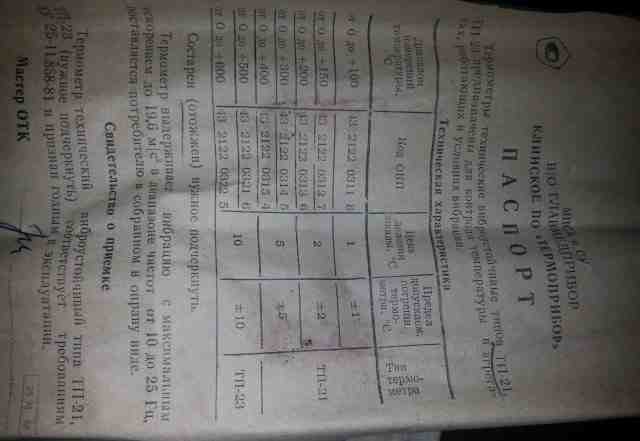 НПО ГЛАВМЕДПРИБОР
КЛИНСКОЕ ПО «ТЕРМОПРИБОР»
ПАСПОРТ
Термометры технические виброустойчивые типов ТП-21,
предназначены для контроля температуры в
работающих в условиях вибрации.
Техническая характеристика
Диапазон измерений температуры, °С
Код ОКП
Цена деления шкалы, °С
Предел допускаем. погрешн. термометра, °С
Тип термометра
от 0 до +100 43 2122 0311 1 ±1
от 0 до +150 43 2122 0312 7 2 ±2 ТП-21
от 0 до +200 43 2122 0313 6
от 0 до +300 43 2122 0314 5 5 ±5
от 0 до +400 43 2122 0315 4
от 0 до +500 43 2122 0321 6 10 ±10 ТП-23
от 0 до +600 43 2122 0322 5
Состарен (отожжен) нужное подчеркнуть.
Термометр выдерживает вибрацию с максимальным
ускорением до 19,6 м/с² в диапазоне частот от 10 до 25 Гц,
доставляется потребителю в собранном в оправу виде.
Свидетельство о приемке
Термометр технический виброустойчивый типа ТП-21,
ТП-23 (нужное подчеркнуть) соответствует требованиям
25-11.858-81 и признан годным к эксплуатации.
Мастер ОТК